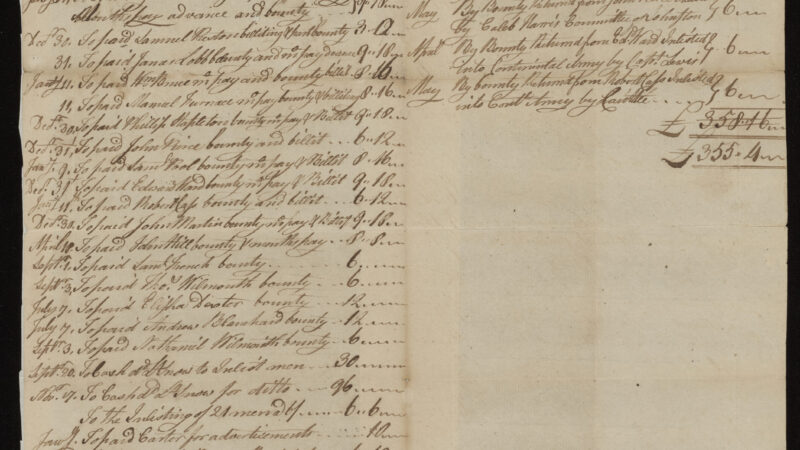 months pay advance and bounty
Decr. 30. To paid Samuel Weston billiting & part bounty 3-12
31. To paid James Cobb bounty and m. pay 9-18
Janry 11. To paid Wm Bruce m. pay and bounty billit 8-16
11. To paid Samuel Furnace m. pay bounty & billiting 8-16
Decr. 30. To paid Phillip Stapleton bounty m. pay & Billit 9-18
Decr. 31. To paid John Pierce bounty and billit 6-12
Janry 9. To paid Saml Pool bounty m. pay & Billit 8-16
Decr. 31. To paid Edward Ward bounty m. pay & Billit 9-18
Janry 11. To paid Robert Cass bounty and billit 6-12
Decr. 30. To paid John Martin bounty m. pay & Billit 9-18
April To paid John Hill bounty & months pay 8-8
Septr. 1. To paid Saml French bounty 6
Septr. 3. To paid Thos. Wilmouth bounty 6
July 7. To paid Elisha Dexter bounty 12
July 7. To paid Andrew Blanchard bounty 12
Septr. 3. To paid Nathaniel Wilmouth bounty 6
Septr. 20. To Cash dd. Lt Snow to Inlist men 30
Novr. 17. To Cash Dd. Lt Snow for ditto 96
To the Inlisting of 21 men a 6/ 6-6
Janry To paid Carter for advertisements 18
May By Bounty Returnd from
by Caleb Harris Committee of Johnston 7-6
April By Bounty Returnd from Ed Ward Inlisted
into Continental Army by Capt. Lewis 7-6
May By bounty Returnd from Robert Cass Inlisted
into Cont Armey by 7-6
£ 358-16
£ 355-4